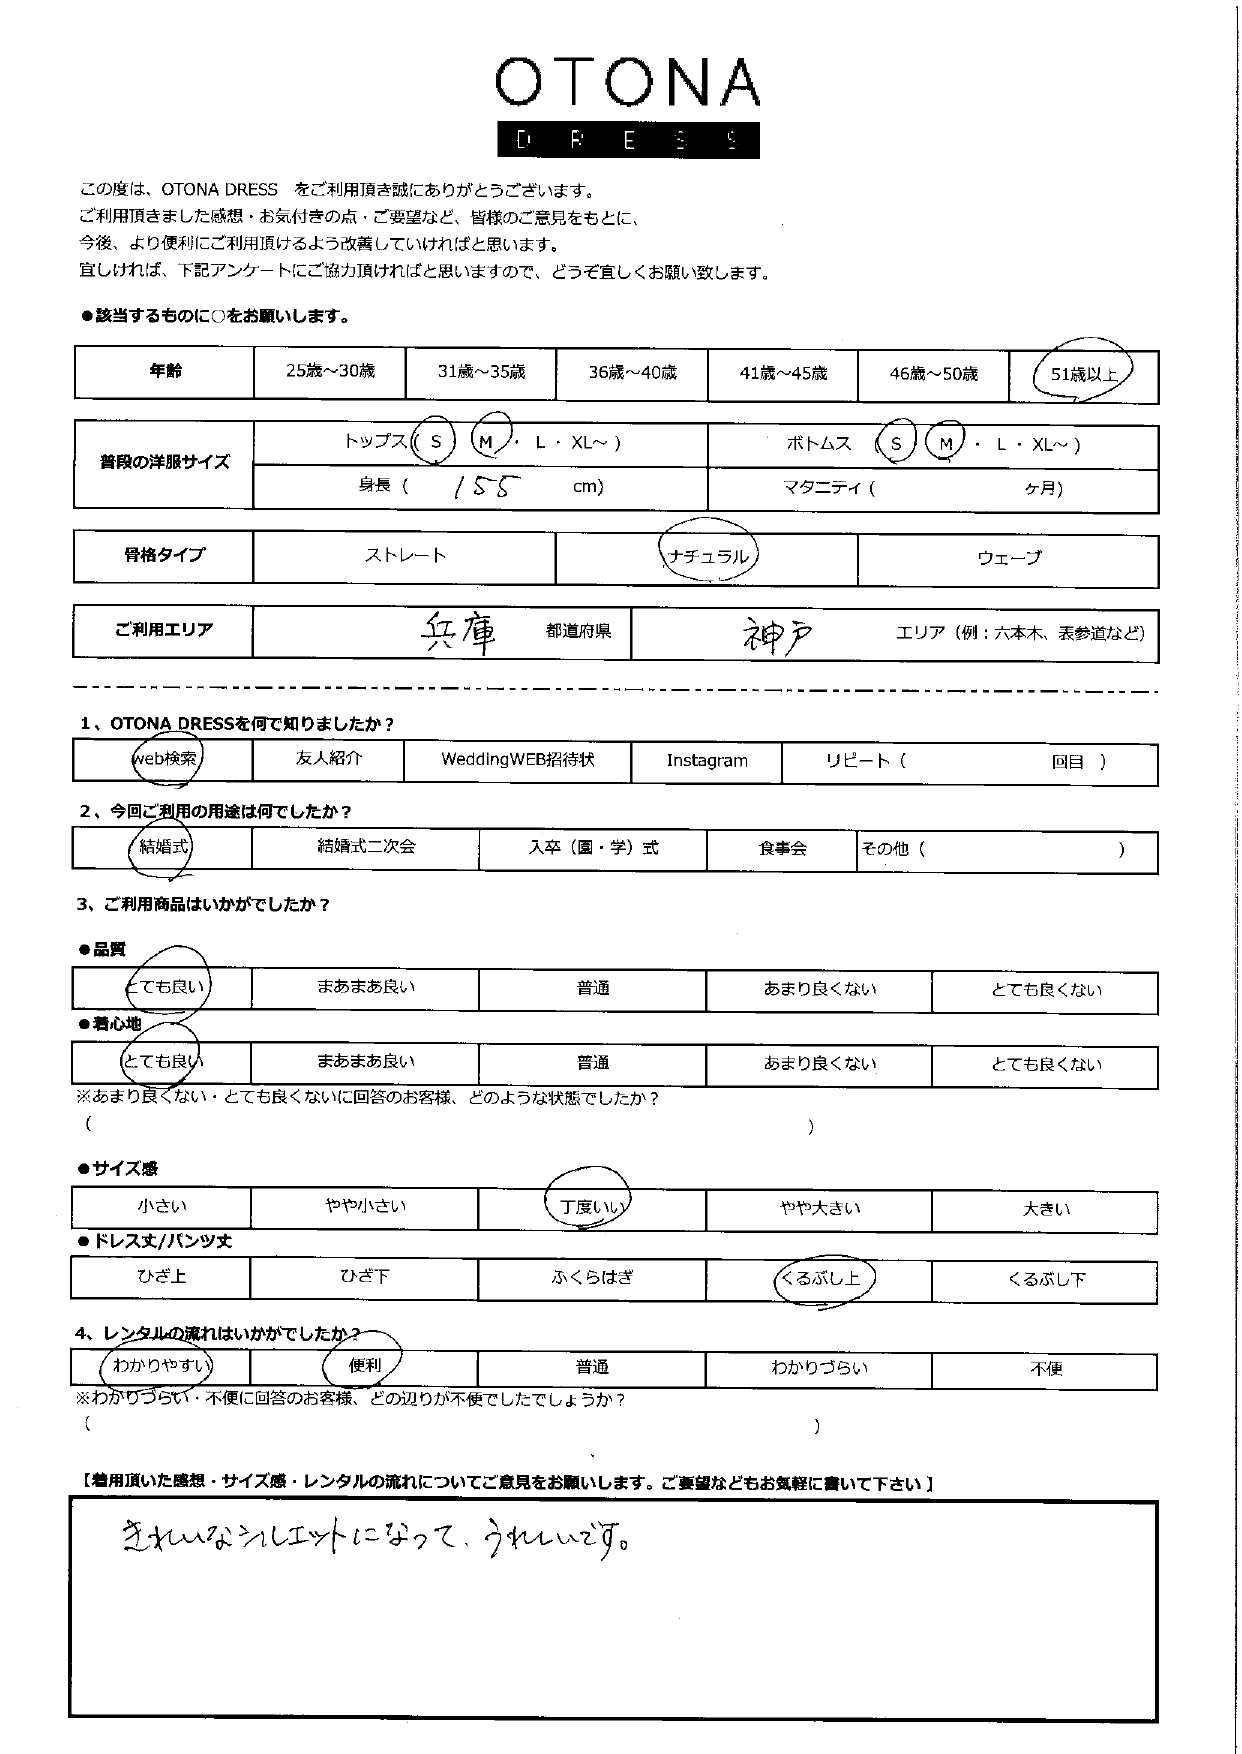 OTONA
DRESS
この度は、OTONA DRESS　をご利用頂き誠にありがとうございます。
ご利用頂きました感想・お気付きの点・ご要望など、皆様のご意見をもとに、
今後、より便利にご利用頂けるよう改善していければと思います。
宜しければ、下記アンケートにご協力頂ければと思いますので、どうぞ宜しくお願い致します。
●該当するものに○をお願いします。
年齢 25歳～30歳 31歳～35歳 36歳～40歳 41歳～45歳 46歳～50歳 51歳以上
普段の洋服サイズ トップス( S M ・ L ・ XL～ ) ボトムス ( S M ・ L ・ XL～ )
身長 ( 155 cm) マタニティ ( ケ月)
骨格タイプ ストレート ナチュラル ウェーブ
ご利用エリア 兵庫 都道府県 神戸 エリア（例：六本木、表参道など）
1、OTONA DRESSを何で知りましたか？
web検索 友人紹介 WeddingWEB招待状 Instagram リピート（ 回目 ）
2、今回ご利用の用途は何でしたか？
結婚式 結婚式二次会 入卒（園・学）式 食事会 その他（ ）
3、ご利用商品はいかがでしたか？
●品質
とても良い まあまあ良い 普通 あまり良くない とても良くない
●着心地
とても良い まあまあ良い 普通 あまり良くない とても良くない
※あまり良くない・とても良くないに回答のお客様、どのような状態でしたか？
（ ）
●サイズ感
小さい やや小さい 丁度いい やや大きい 大きい
●ドレス丈/パンツ丈
ひざ上 ひざ下 ふくらはぎ くるぶし上 くるぶし下
4、レンタルの流れはいかがでしたか？
わかりやすい 便利 普通 わかりづらい 不便
※わかりづらい・不便に回答のお客様、どの辺りが不便でしたでしょうか？
（ ）
【着用頂いた感想・サイズ感・レンタルの流れについてご意見をお願いします。ご要望などもお気軽に書いて下さい】
きれいなシルエットになって、うれしいです。